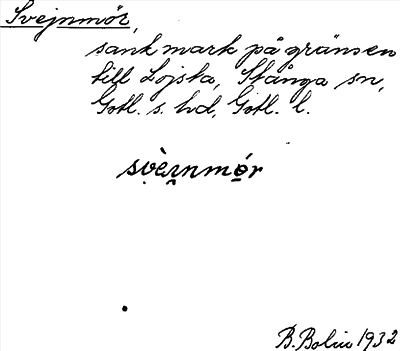 Svejnmör,
sank mark på gränsen
till Lojsta, Stånga sn,
Gotl. s. hd, Gotl. l.
svèi̯nmọ́r
B. Bolin 1932